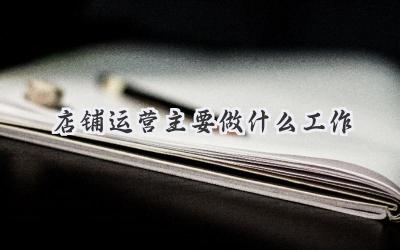 店铺运营主要做什么工作